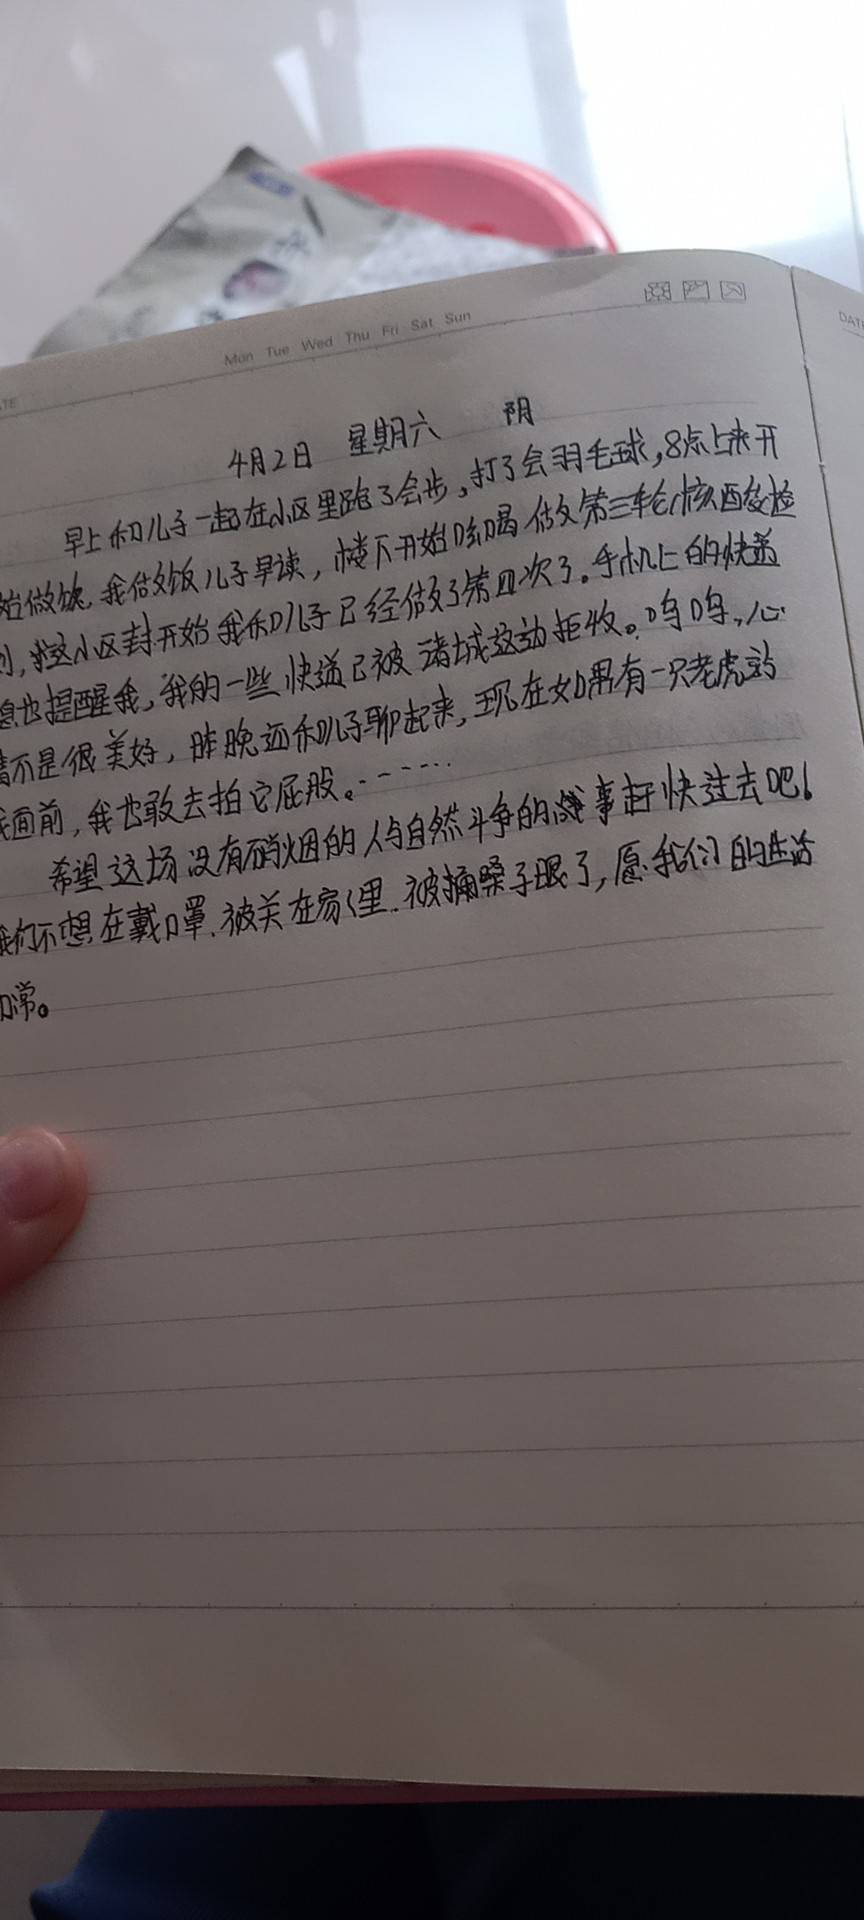 Mon Tue Wed Thu Fri Sat Sun
DATE
4月2日 星期六 阴
早上和儿子一起在小区里跑了会步,打了会羽毛球,8点上来开
始做饭,我做饭儿子早读,楼下开始吆喝做第三轮核酸检
测,我这小区封开始我和儿子已经做了第四次了。手机上的快递
息也提醒我,我的一些快递已被诸城这边拒收。呜呜,心
情不是很美好,昨晚还和儿子聊起来,现在如果有一只老虎站
我面前,我也敢去拍它屁股。……
希望这场没有硝烟的人与自然斗争的战事赶快过去吧!
我们不想在戴口罩.被关在家里.被捅嗓子眼了,愿我们的生活
如常。